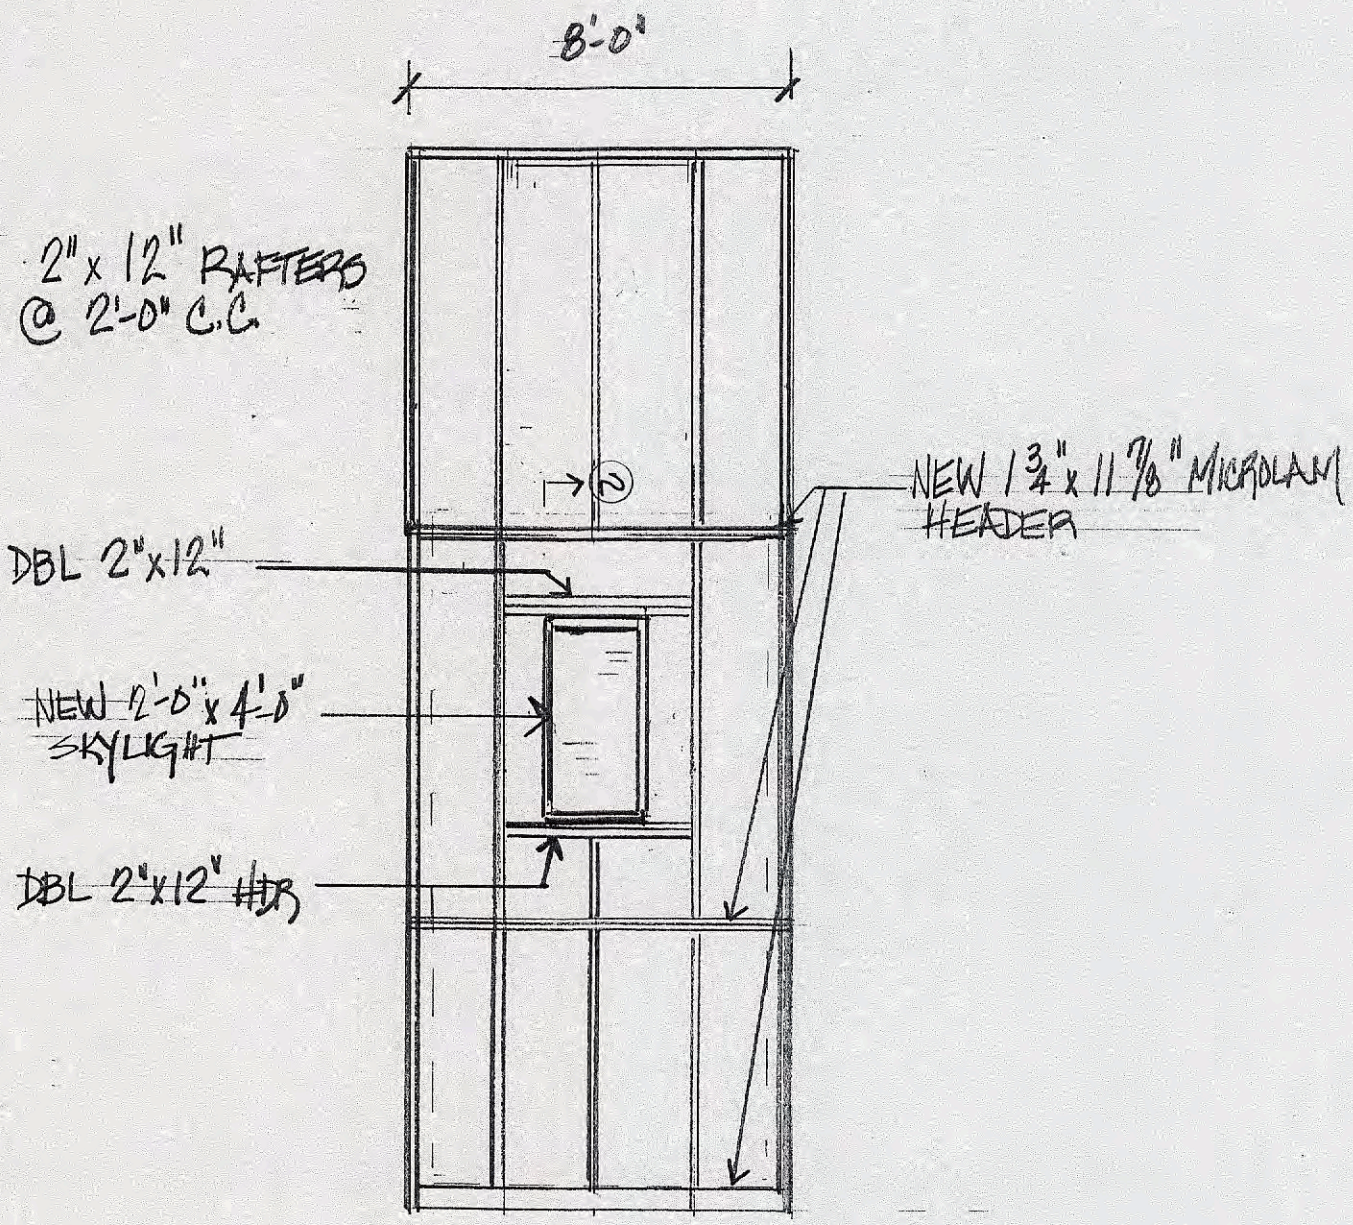 8'-0"
2" x 12" RAFTERS
@ 2'-0" C.C.
2
NEW 1 3/4" x 11 7/8" MICROLAM
HEADER
DBL 2"x12"
NEW 2'-0" x 4'-0"
SKYLIGHT
DBL 2"x12" HDR